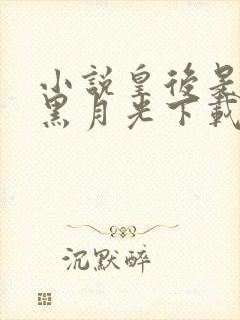 小説皇後是
黑月光下載
沉默醉